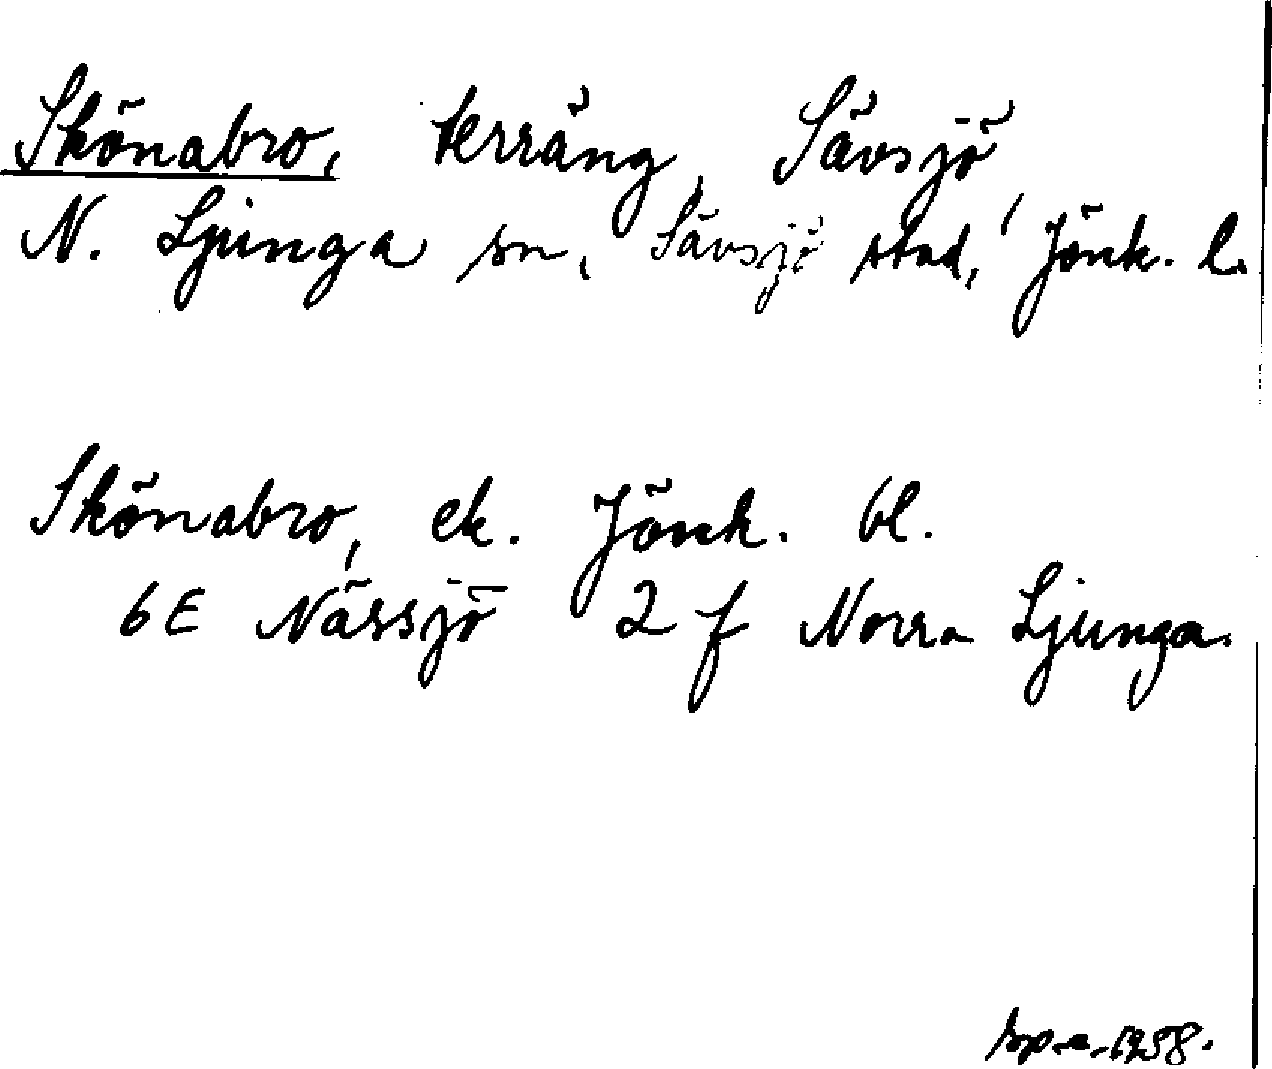 Skönabro, terräng, Sävsjö
N. Ljunga sn, Sävsjö stad, Jönk. l.
Skönabro, ek. Jönk. bl.
6E Nässjö 2 f Norra Ljunga.
1958.